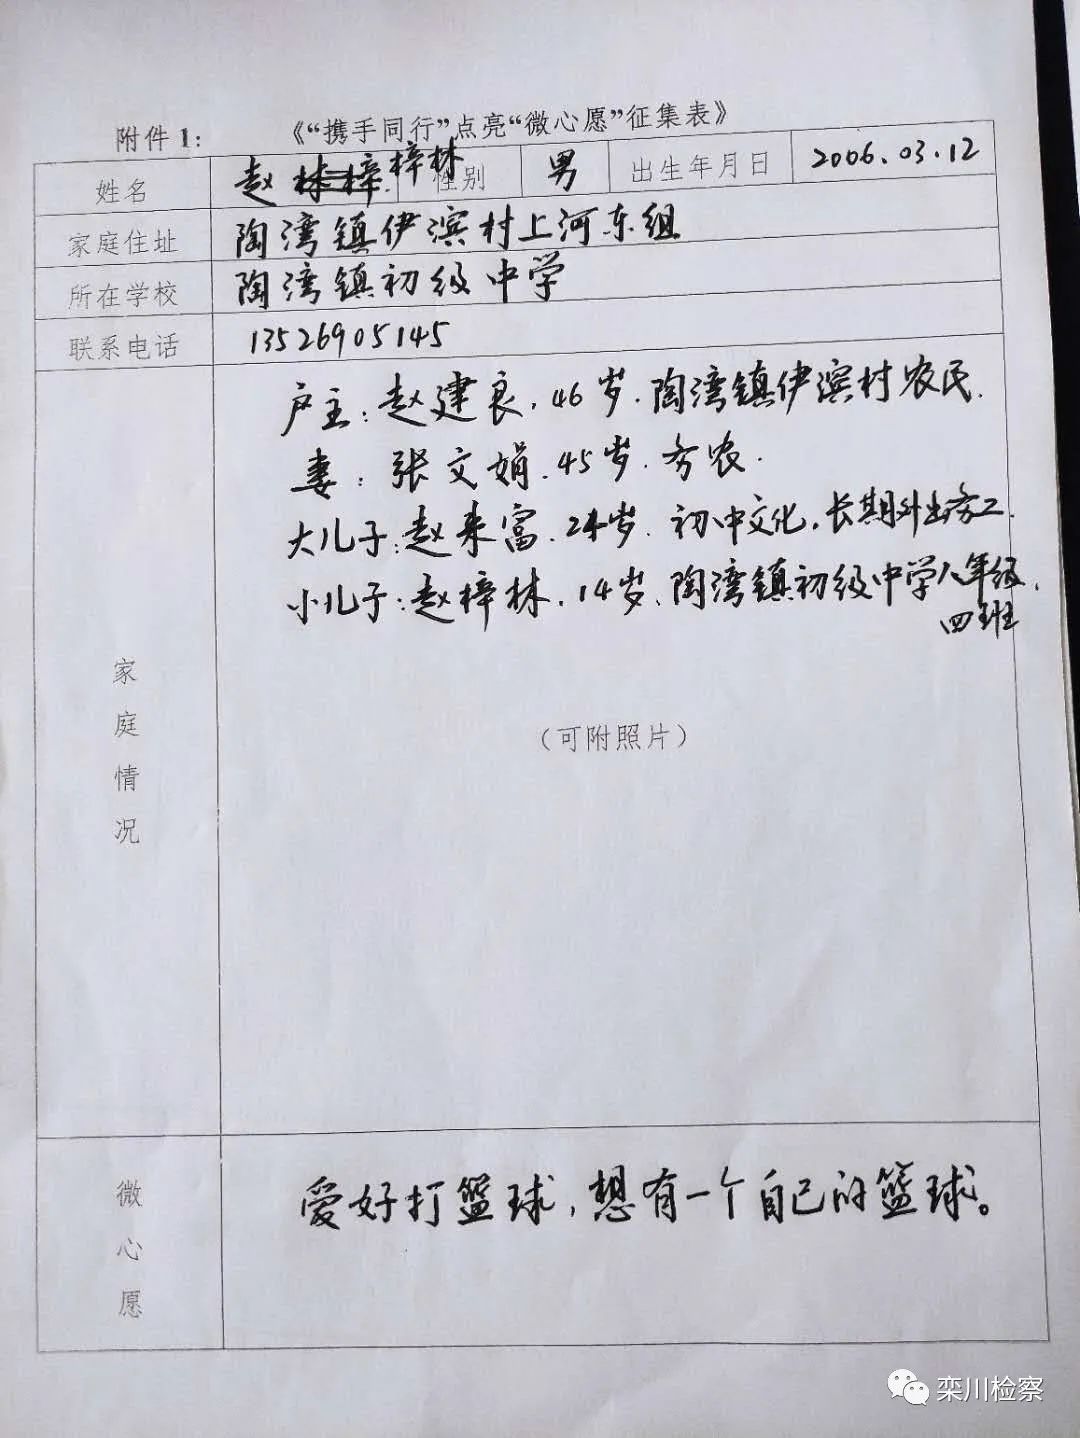 附件1： 《“携手同行”点亮“微心愿”征集表》
姓名 赵梓林 性别 男 出生年月日 2006.03.12
家庭住址 陶湾镇伊滨村上河东组
所在学校 陶湾镇初级中学
联系电话 13526905145
户主：赵建良，46岁．陶湾镇伊滨村农民．
妻：张文娟．45岁．务农．
大儿子：赵来富．24岁．初中文化，长期外出务工．
小儿子：赵梓林．14岁、陶湾镇初级中学八年级，
四班
家庭情况
（可附照片）
微心愿
爱好打篮球，想有一个自己的篮球。
栾川检察